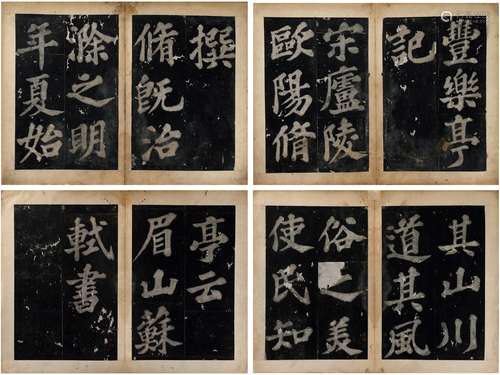 豐樂亭
記
宋廬陵
歐陽脩
撰
脩既治
滁之明
年夏始
其山川
道其風
俗之美
使民知
亭云
眉山蘇
軾書